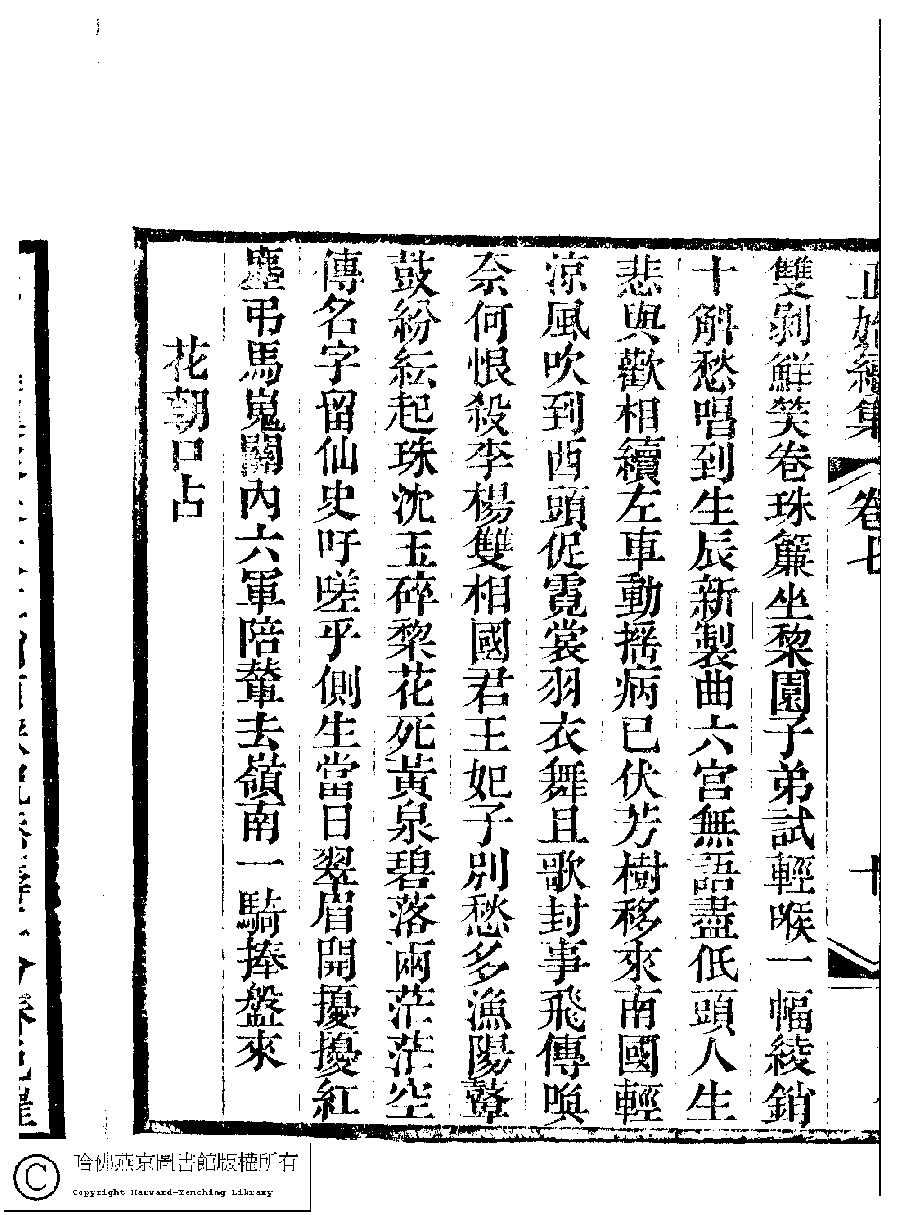 正始續集　卷七　十
雙剝鮮笑卷珠簾坐棃園子弟試輕喉一幅綾銷
十解愁唱到生辰新製曲六宮無語盡低頭人生
悲與歡相續左車動搖病已伏芳樹移來南國輕
涼風吹到西頭促霓裳羽衣舞且歌封事飛傳喚
奈何恨殺李楊雙相國君王妃子別愁多漁陽鼙
鼓紛紜起珠沈玉碎棃花死黃泉碧落兩茫茫空
傳名字留仙史吁嗟乎側生當日翠眉開擾擾紅
塵弔馬嵬關內六軍陪輦去嶺南一騎捧盤來
花朝口占
哈佛燕京圖書館版權所有
Copyright Harvard-Yenching Library